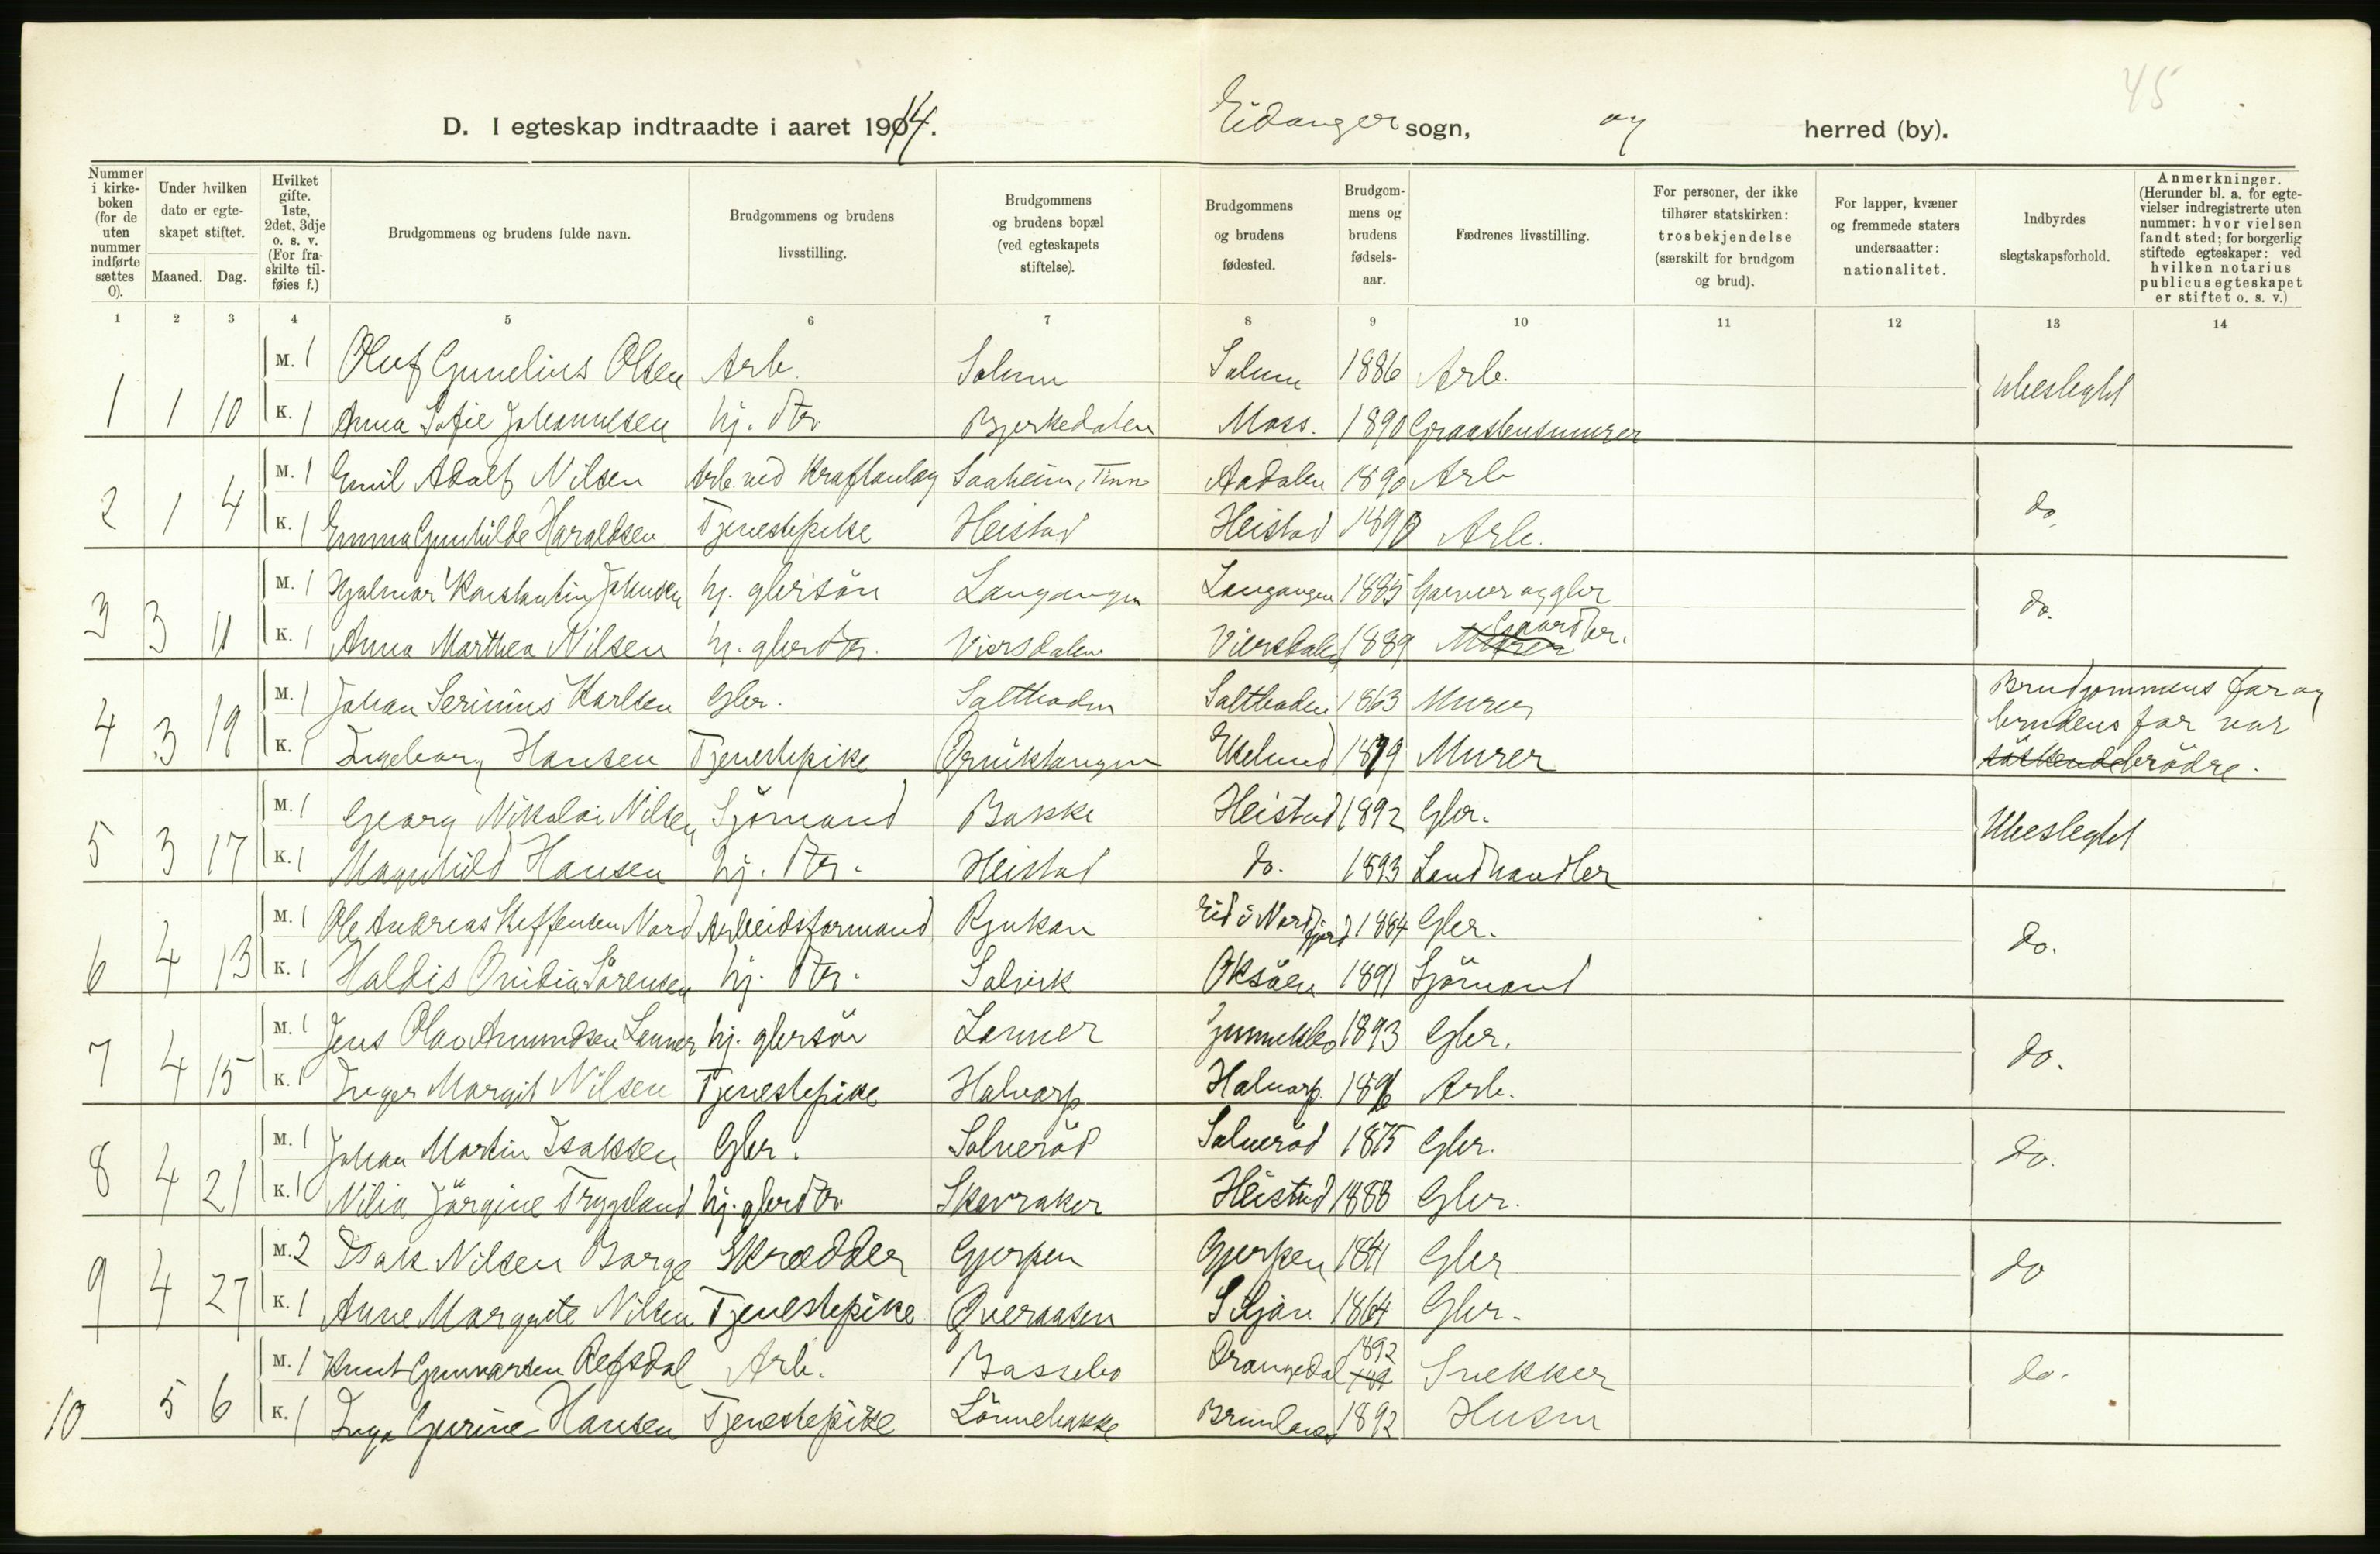 45
D. I egteskap indtraadte i aaret 1914. Eidanger sogn, og herred (by).
Nummer i kirkeboken (for de uten nummer indførte sættes 0).
Under hvilken dato er egteskapet stiftet.
Maaned. Dag.
Hvilket gifte. 1ste, 2det, 3dje o. s. v. (For fraskilte tilføies f.)
Brudgommens og brudens fulde navn.
Brudgommens og brudens livsstilling.
Brudgommens og brudens bopæl (ved egteskapets stiftelse).
Brudgommens og brudens fødested.
Brudgommens og brudens fødselsaar.
Fædrenes livsstilling.
For personer, der ikke tilhører statskirken: trosbekjendelse (særskilt for brudgom og brud).
For lapper, kvæner og fremmede staters undersaatter: nationalitet.
Indbyrdes slegtskapsforhold.
Anmerkninger. (Herunder bl. a. for egtevielser indregistrerte uten nummer: hvor vielsen fandt sted; for borgerlig stiftede egteskaper: ved hvilken notarius publicus egteskapet er stiftet o. s. v.)
1 2 3 4 5 6 7 8 9 10 11 12 13 14
M. 1 Oluf Gunelius Olsen Arb. Solum Solum 1886 Arb. Ubeslegtet
1 1 10 K. 1 Anna Sofie Johannesen hj. dtr. Bjerkedalen Moss. 1890 Graastensmurer
M. 1 Emil Adolf Nilsen Arb. ved Kraftanlæg Saaheim, Tinn Aadalen 1890 Arb
2 1 4 K. 1 Emma Gunhilde Haraldsen Tjenestepike Heistad Heistad 1890 Arb. do.
M. 1 Hjalmar Konstantin Johnsen hj. gbrsön Langangen Langangen 1885 Garver og gbr
3 3 11 K. 1 Anna Marthea Nilsen hj. gbrdtr. Viersdalen Viersdalen 1889 Murer Gaardbr. do.
M. 1 Johan Serinius Karlsen Gbr. Saltboden Saltboden 1863 Murer Brudgommens far og
4 3 19 K. 1 Ingeborg Hansen Tjenestepike Ørviktangen Ekelund 1879 Murer brudens far var
söskendebrödre.
M. 1 Georg Nikolai Nilsen Sjömand Bakke Heistad 1892 Gbr. Ubeslegtet
5 3 17 K. 1 Magnhild Hansen hj. dtr. Heistad do. 1893 Landhandler
M. 1 Ole Andreas Steffensen Nord Arbeidsformand Rjukan Eid i Nordfjord 1884 Gbr.
6 4 13 K. 1 Haldis Ovidia Sörensen hj. dtr. Salvik Oksöen 1891 Sjömand do.
M. 1 Jens Olav Amundsen Lanner hj. gbrsön Lanner Gunneklev 1893 Gbr.
7 4 15 K. 1 Inger Margit Nilsen Tjenestepike Halvarp Halvarp. 1896 Arb. do.
M. 1 Johan Martin Isaksen Gbr. Solveröd Solveröd 1875 Gbr.
8 4 21 K. 1 Nilia Jörgine Trygsland hj. gbrdtr Skavraker Heistad 1888 Gbr. do.
M. 2 Isak Nilsen Borge Skrædder Gjerpen Gjerpen 1841 Gbr
9 4 27 K. 1 Anne Margrete Nilsen Tjenestepike Øveraasen Siljan 1864 Gbr. do
M. 1 Knut Gunnarsen Refsdal Arb. Bassebo Drangedal 1892 Snekker
10 5 6 K. 1 Inga Gurine Hansen Tjenestepike Lönnebakke Brunlanes 1892 Husm do.